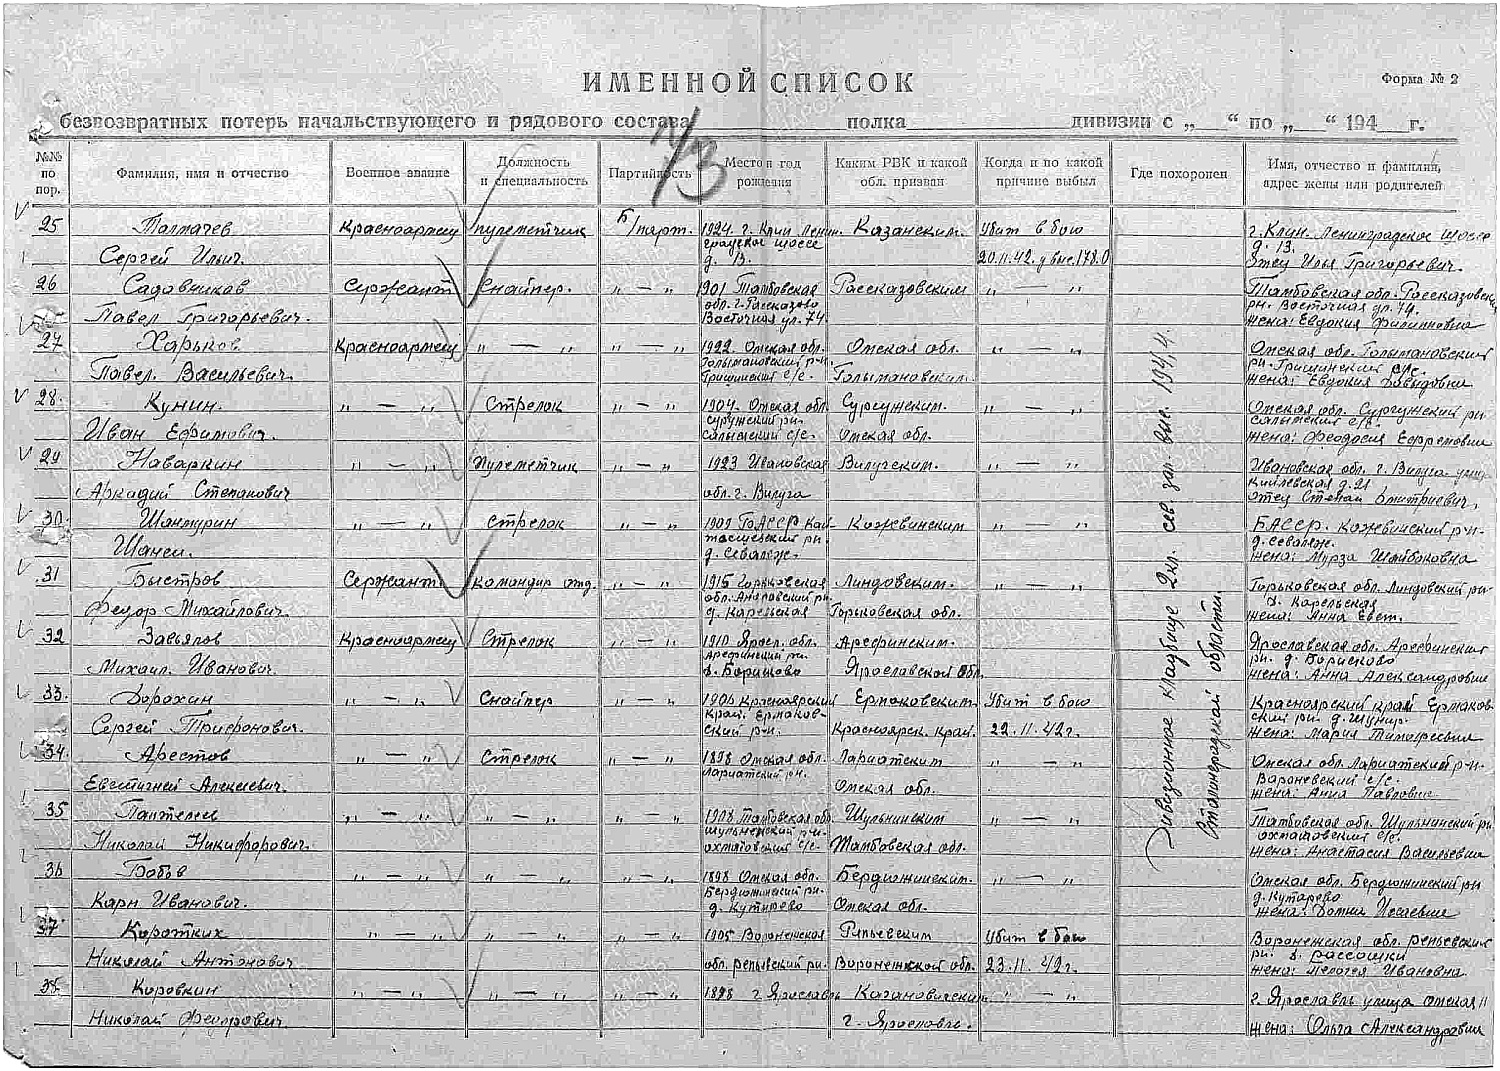 ИМЕННОЙ СПИСОК
Форма № 2
безвозвратных потерь начальствующего и рядового состава полка дивизии с „ “ по „ “ 194 г.
№№ по пор.
Фамилия, имя и отчество
Военное звание
Должность и специальность
Партийность
Место и год рождения
Каким РВК и какой обл. призван
Когда и по какой причине выбыл
Где похоронен
Имя, отчество и фамилия, адрес жены или родителей
25 Толмачев Красноармеец пулеметчик б/парт. 1924 г. Клин Ленинградское шоссе д. 13. Казанским. Убит в бою
Сергей Ильич. 20.11.42. у выс. 178.0 г. Клин. Ленинградское шоссе д. 13. отец Илья Григорьевич.
26 Садовников Сержант Снайпер. „ — „ 1901 Тамбовская обл. г. Рассказово Восточная ул. 74 Рассказовским „ — „
Павел Григорьевич. Тамбовская обл. Рассказовск. рн. Восточная ул. 74. жена: Евдокия Филипповна
27 Харьков Красноармеец „ — „ „ — „ 1922. Омская обл. Омская обл. „ — „
Павел Васильевич. Голымановским. Омская обл. Голымановский рн. Гришинский с/с. жена: Евдокия Давыдовна
28. Кунин. „ — „ Стрелок „ — „ 1904. Омская обл. Сургужским. „ — „
Иван Ефимович. Омская обл. Омская обл. Сургужский рн жена: Феодосия Ефремовна
29 Наваркин „ — „ Пулеметчик „ — „ 1923 Ивановская обл. г. Вичуга Вичугским. „ — „
Аркадий Степанович Ивановская обл. г. Вичуга отец Степан Дмитриевич.
30. Шаймурин „ — „ стрелок „ — „ 1909 д. Севалеж. Кожевинским „ — „
БАССР. Кожвинский р-н д. Севалеж. жена: Мурза
31 Быстров Сержант Командир отд. „ — „ 1915 Горьковская обл. д. Карельская Линдовским. „ — „
Федор Михайлович. Горьковская обл. Горьковская обл. Линдовский рн д. Карельская жена: Анна Евст.
32 Завьялов Красноармеец Стрелок „ — „ 1910 Яросл. обл. Арефинский рн. д. Борисково Арефинским. „ — „
Михаил Иванович. Ярославской обл. Ярославская обл. Арефинский рн. д. Борисково жена: Анна Александровна
33. Дорохин „ — „ Снайпер „ — „ 1906 Красноярский край. Ермаковский р-н. Ермаковским Убит в бою
Сергей Трифонович. Красноярск. край. 22.11.42г. Красноярский край Ермаковский рн д. жена: Мария Тимофеевна
34. Арестов „ — „ Стрелок „ — „ 1898 Омская обл. Лариатский рн. Лариатским „ — „
Евстигней Алексеевич. Омская обл. Омская обл. Лариатский р-н. Вороневский с/с. жена: Анна Павловна
35 Пантелеев „ — „ „ — „ „ — „ 1908 Тамбовская обл. Шульнинским „ — „
Николай Никифорович. Тамбовская обл. Тамбовская обл. Шульнинский рн охтаговский с/с. жена: Анастасия Васильевна
36 Бобов „ — „ „ — „ „ — „ 1898 Омская обл. Бердюжинский рн. д. Кутырево Бердюжинским. „ — „
Карп Иванович. Омская обл. Омская обл. Бердюжинский рн д. Кутарево жена: Домна Исаевна
37. Коротких „ — „ „ — „ „ — „ 1905 Воронежская обл. репьевский рн. Репьевским Убит в бою
Николай Антонович Воронежской обл. 23.11.42г. Воронежская обл. репьевский рн. д. россошки жена: Пелогея Ивановна
38. Коровкин „ — „ „ — „ „ — „ 1898 г. Ярославль Кагановическим „ — „
Николай Федорович. г. Ярославль. г. Ярославль улица Омская 11 жена: Ольга Александровна
Дивизионное кладбище 2 км. сев. зап. выс. 194,4. Сталинградской области.